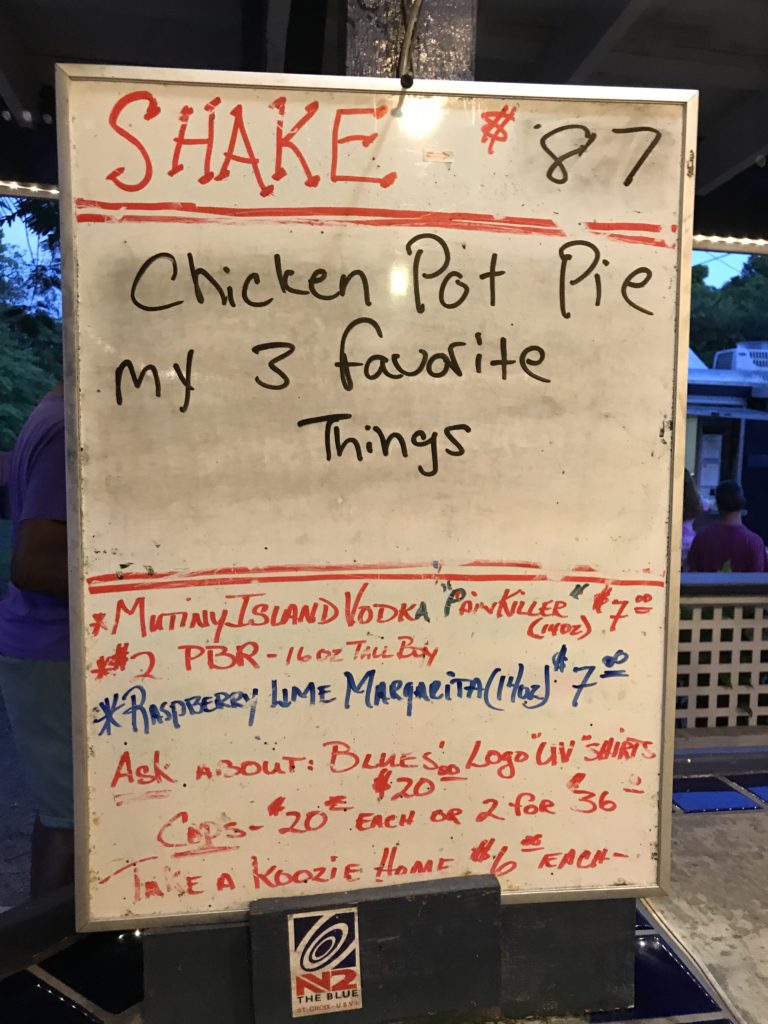 SHAKE - $ 87
Chicken Pot Pie
my 3 favorite
Things
*MUTINY ISLAND VODKA "PAINKILLER" $7.00
(14oz)
*$2 PBR - 16 oz TALL BOY
*RASPBERRY LIME MARGARITA (14oz) $7.00
ASK ABOUT: BLUES' LOGO "UV" SHIRTS
$20.00
CUPS - $20 EACH OR 2 FOR $36
-TAKE A KOOZIE HOME $6.00 EACH-
N2
THE BLUE
ST. CROIX - U.S.V.I.